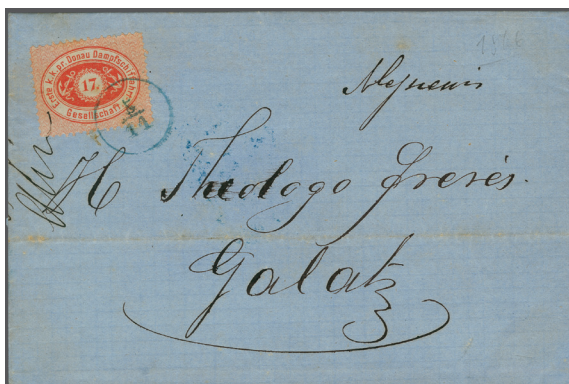 1866
Erste k.k. pr. Donau Dampfschiffahrt
17.
Gesellschaft
5/11
Messieurs
H Theologo freres.
Galatz